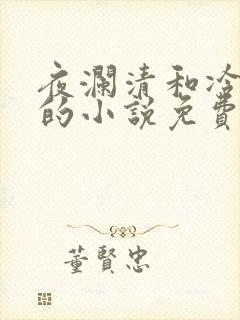 夜瀾清和冷
的小說免費
董賢忠